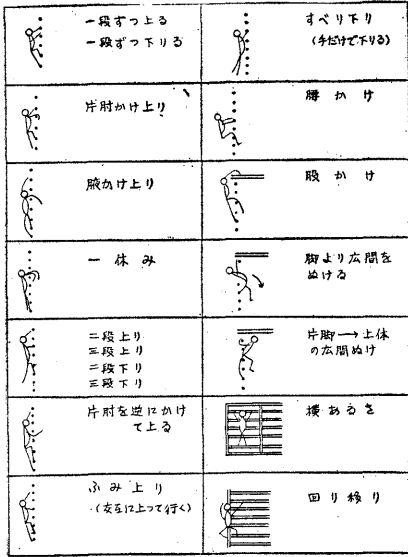 一段ずつ上る
一段ずつ下りる
すべり下り
(手だけで下りる)
片肘かけ上り
腰かけ
腋かけ上り
股かけ
一休み
脚より広間を
ぬける
二段上り
三段上り
二段下り
三段下り
片脚→上体
の広間ぬけ
片肘を逆にかけ
て上る
横あるき
ふみ上り
(左右に上って行く)
回り移り